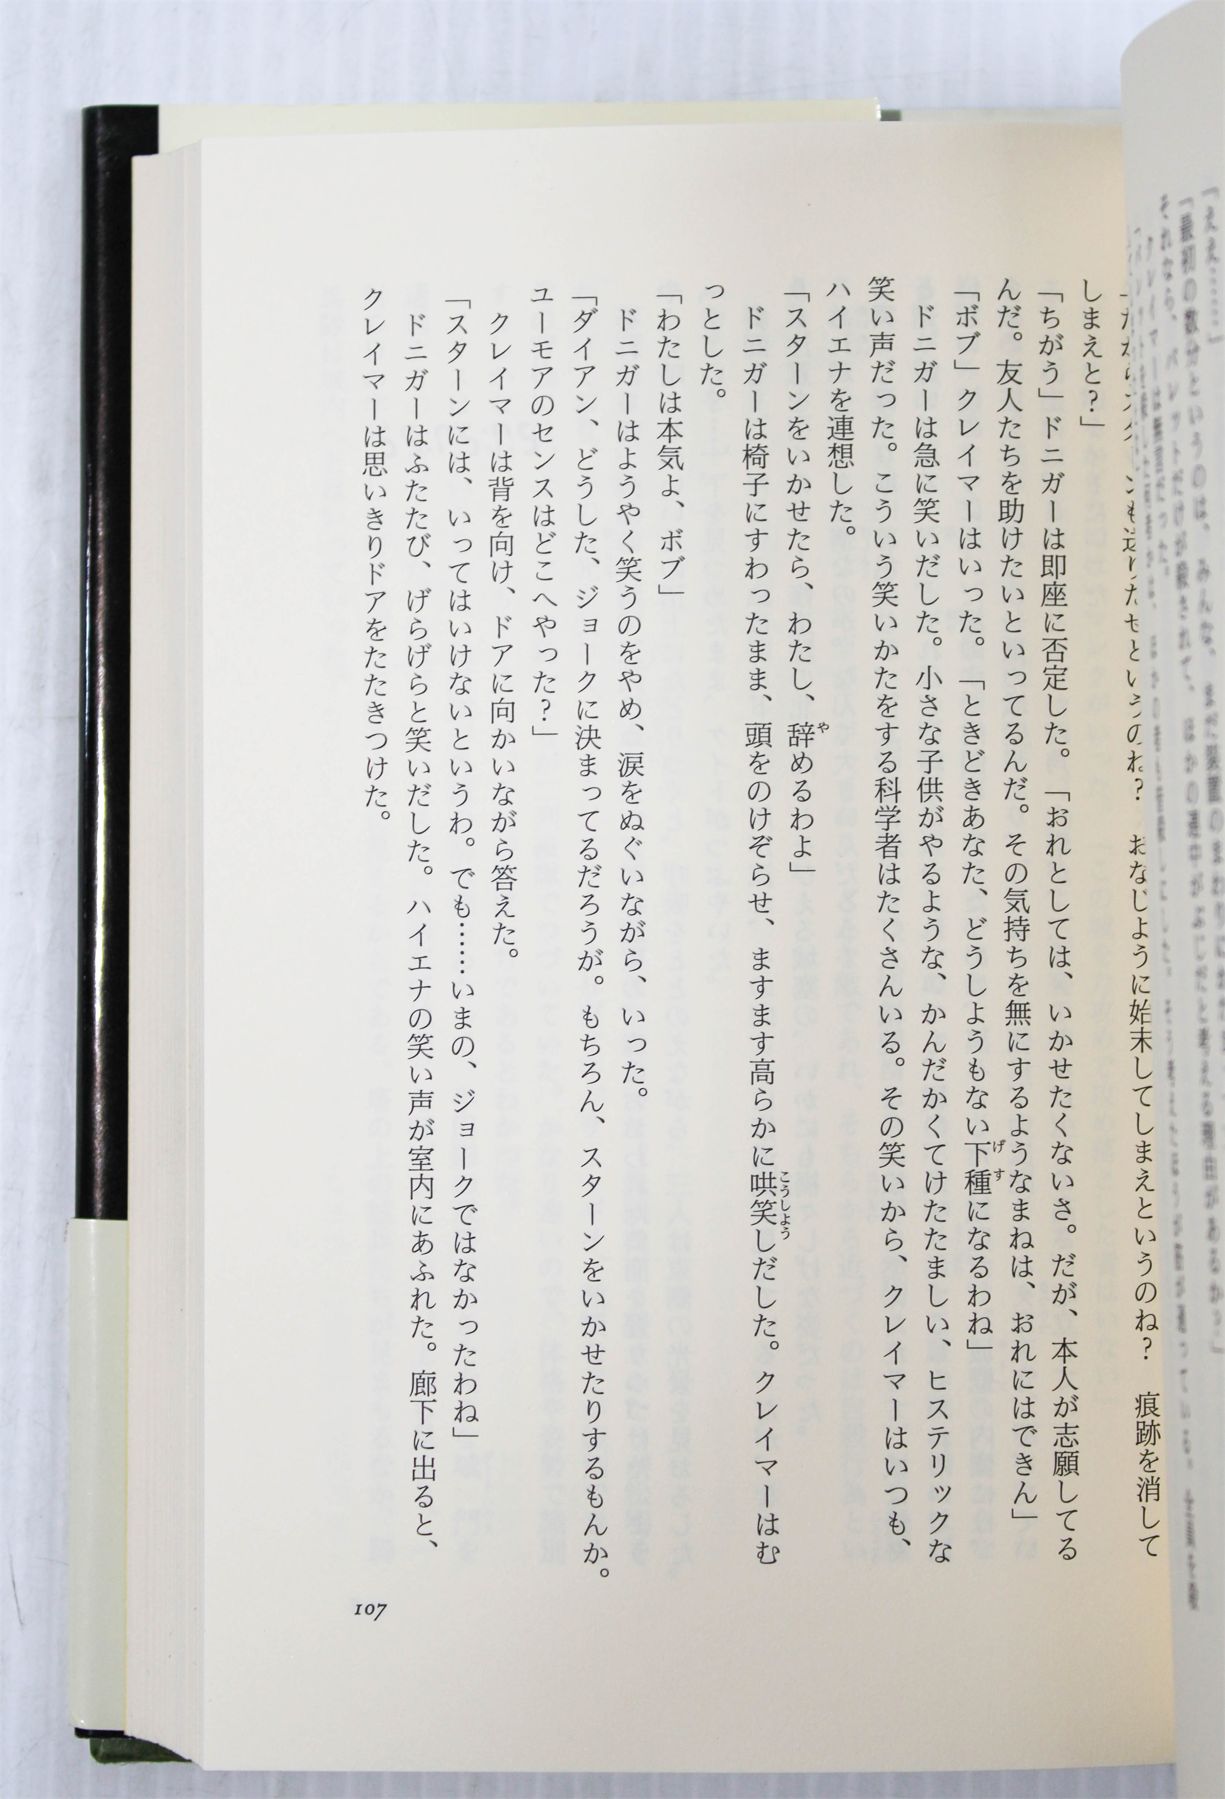 「だからスターンも送りだせというのね？　おなじように始末してしまえというのね？　痕跡を消して
しまえと？」
「ちがう」ドニガーは即座に否定した。「おれとしては、いかせたくないさ。だが、本人が志願してる
んだ。友人たちを助けたいといってるんだ。その気持ちを無にするようなまねは、おれにはできん」
「ボブ」クレイマーはいった。「ときどきあなた、どうしようもない下種になるわね」
ドニガーは急に笑いだした。小さな子供がやるような、かんだかくてけたたましい、ヒステリックな
笑い声だった。こういう笑いかたをする科学者はたくさんいる。その笑いから、クレイマーはいつも、
ハイエナを連想した。
「スターンをいかせたら、わたし、辞めるわよ」
ドニガーは椅子にすわったまま、頭をのけぞらせ、ますます高らかに哄笑しだした。クレイマーはむ
っとした。
「わたしは本気よ、ボブ」
ドニガーはようやく笑うのをやめ、涙をぬぐいながら、いった。
「ダイアン、どうした、ジョークに決まってるだろうが。もちろん、スターンをいかせたりするもんか。
ユーモアのセンスはどこへやった？」
クレイマーは背を向け、ドアに向かいながら答えた。
「スターンには、いってはいけないというわ。でも……いまの、ジョークではなかったわね」
ドニガーはふたたび、げらげらと笑いだした。ハイエナの笑い声が室内にあふれた。廊下に出ると、
クレイマーは思いきりドアをたたきつけた。
107